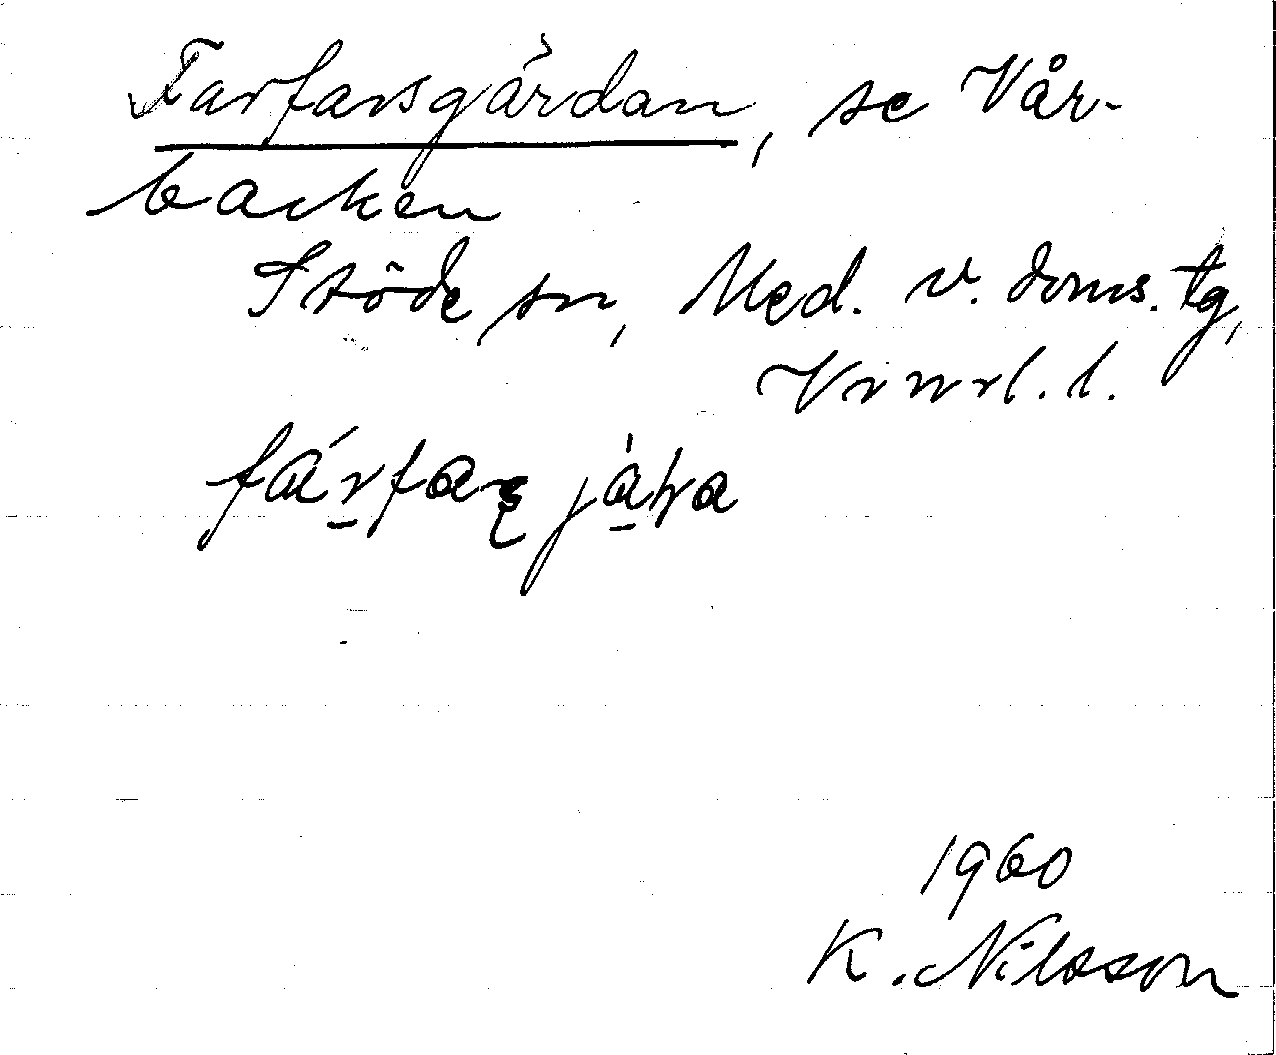 Farfarsgårdan, se Vår-
backen
Stöde sn, Med. v. doms. tg,
Vrnrl. l.
1960
K. Nilsson